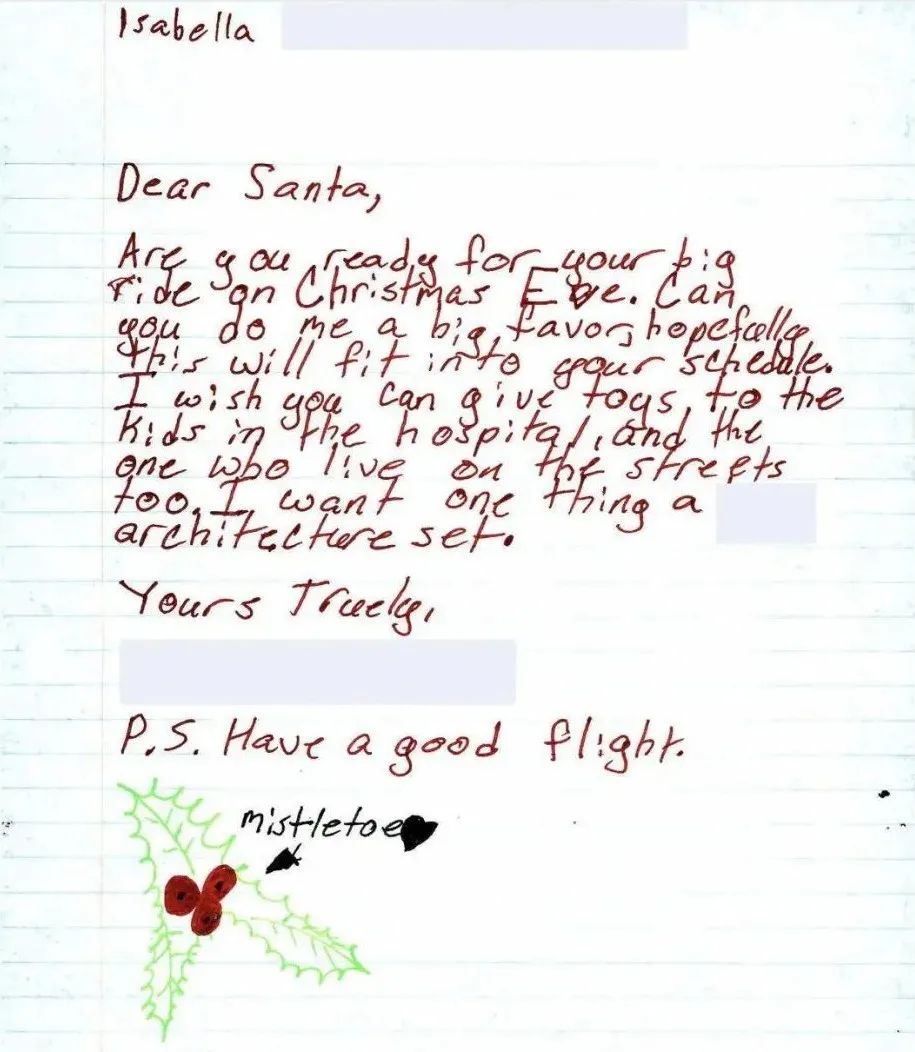 Isabella
Dear Santa,
Are you ready for your big
ride on Christmas Eve. Can
you do me a big favor, hopefully
this will fit into your schedule.
I wish you can give toys to the
kids in the hospital, and the
one who live on the streets
too. I want one thing a
architecture set.
Yours Truely,
P.S. Have a good flight.
mistletoe